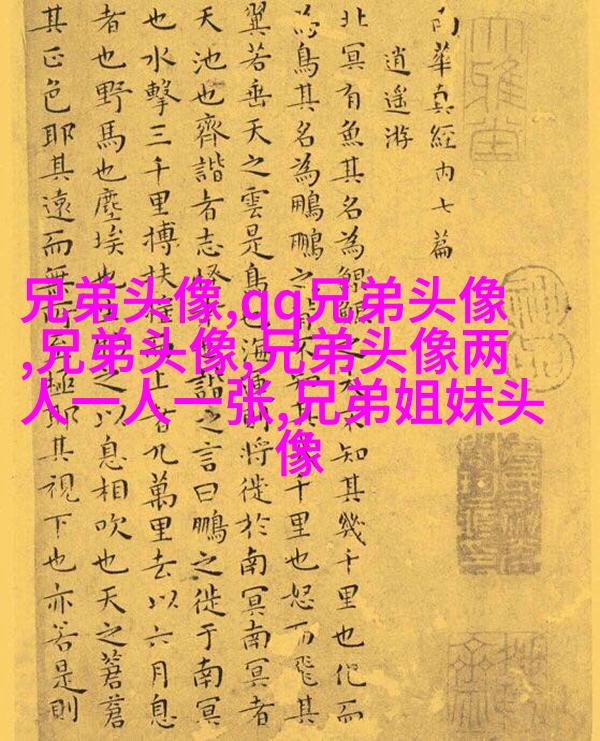 兄弟头像,qq兄弟头像
,兄弟头像,兄弟头像两
人一人一张,兄弟姐妹头
像
南華真經內七篇
逍遥游
北冥有魚其名為鯤鯤之大不知其幾千里也化而
為鳥其名為鵬鵬之背不知其千里也怒而飛其
翼若垂天之雲是鳥也海運則將徙於南冥南冥者
天池也齊諧者志怪者也諧之言曰鵬之徙于南冥
也水擊三千里搏扶搖而上者九萬里去以六月息
者也野馬也塵埃也生物之以息相吹也天之蒼蒼
其正色耶其遠而無所至極耶其視下也亦若是則
大雅堂